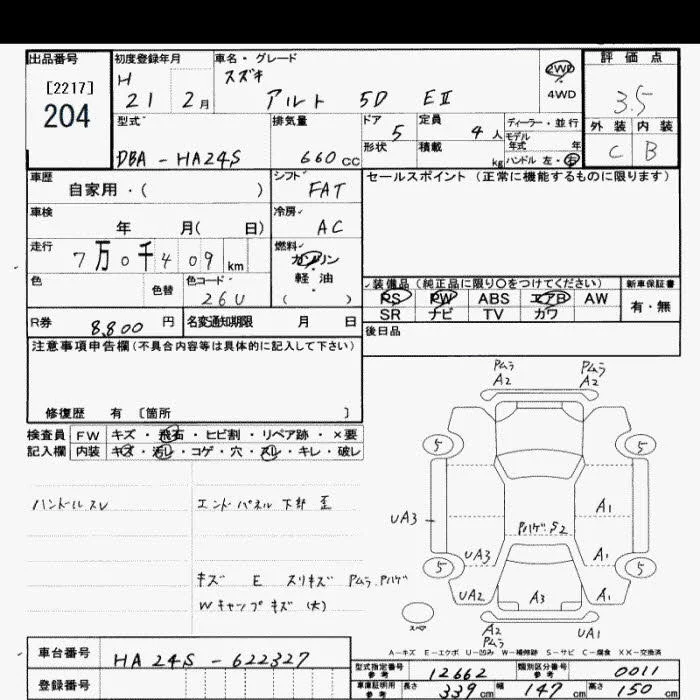 出品番号 初度登録年月 車名・グレード 評価点
[2217] H スズキ 2WD
204 21 2月 アルト 5D EⅡ ・ 4WD 3.5
型式 排気量 ドア 5 定員 4人 ディーラー・並行 外装 内装
DBA - HA24S 660cc 形状 積載 kg モデル年式 年 C B
ハンドル 左・右
車歴 シフト セールスポイント (正常に機能するものに限ります)
自家用・( ) FAT
車検 冷房
年 月( 日) AC
走行 燃料
7万0千409km ガソリン
軽・油
色 色替 色コード ( )
26U
装備品(純正品に限り〇をつけてください) 新車保証書
PS PW ABS エアB AW 有・無
SR ナビ TV カワ
R券 8,800円 名変通知期限 月 日 後日品
注意事項申告欄(不具合内容等は具体的に記入して下さい)
修復歴 有 〔箇所 〕
検査員 FW キズ・飛石・ヒビ割・リペア跡・×要
記入欄 内装 キズ・汚レ・コゲ・穴・スレ・キレ・破レ
ハンドルスレ エンドパネル下部 歪
キズ E スリキズ Pムラ Pハゲ
Wキャップキズ (大)
Pムラ Pムラ
A2 A2
5 5
UA3 A1
Pハゲ S2
UA3 A1
5 5
UA2 A3 A1
スペア
A2 UA1
Pムラ
A-キズ E-エクボ U-凹み W-補修跡 S-サビ C-腐食 XX-交換済
車台番号 HA24S - 622327
登録番号
型式指定番号 参考 12662 類別区分番号 参考 0011
車庫証明用 参考 長さ 339cm 幅 147cm 高さ 150cm